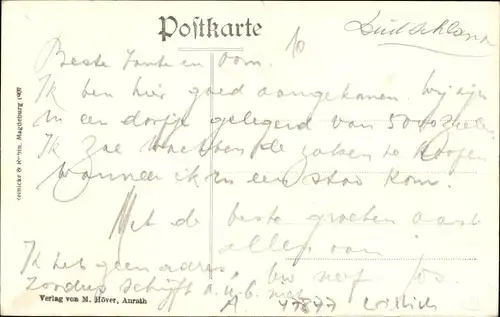 Postkarte
Duitschland
10
Beste Tante en Oom.
Ik ben hier goed aangekomen. Wij zijn
in een dorpje gelegerd van 5000 zielen.
Ik zal wachten de zaken te koopen
wanneer ik in een stad kom.
Met de beste groeten aast
allen van
Ik heb geen adres, uw neef Jos.
Zoodus schrijft a.u.b. niet
A. 47877
Verlag von M. Höver, Anrath
Magdeburg 1907